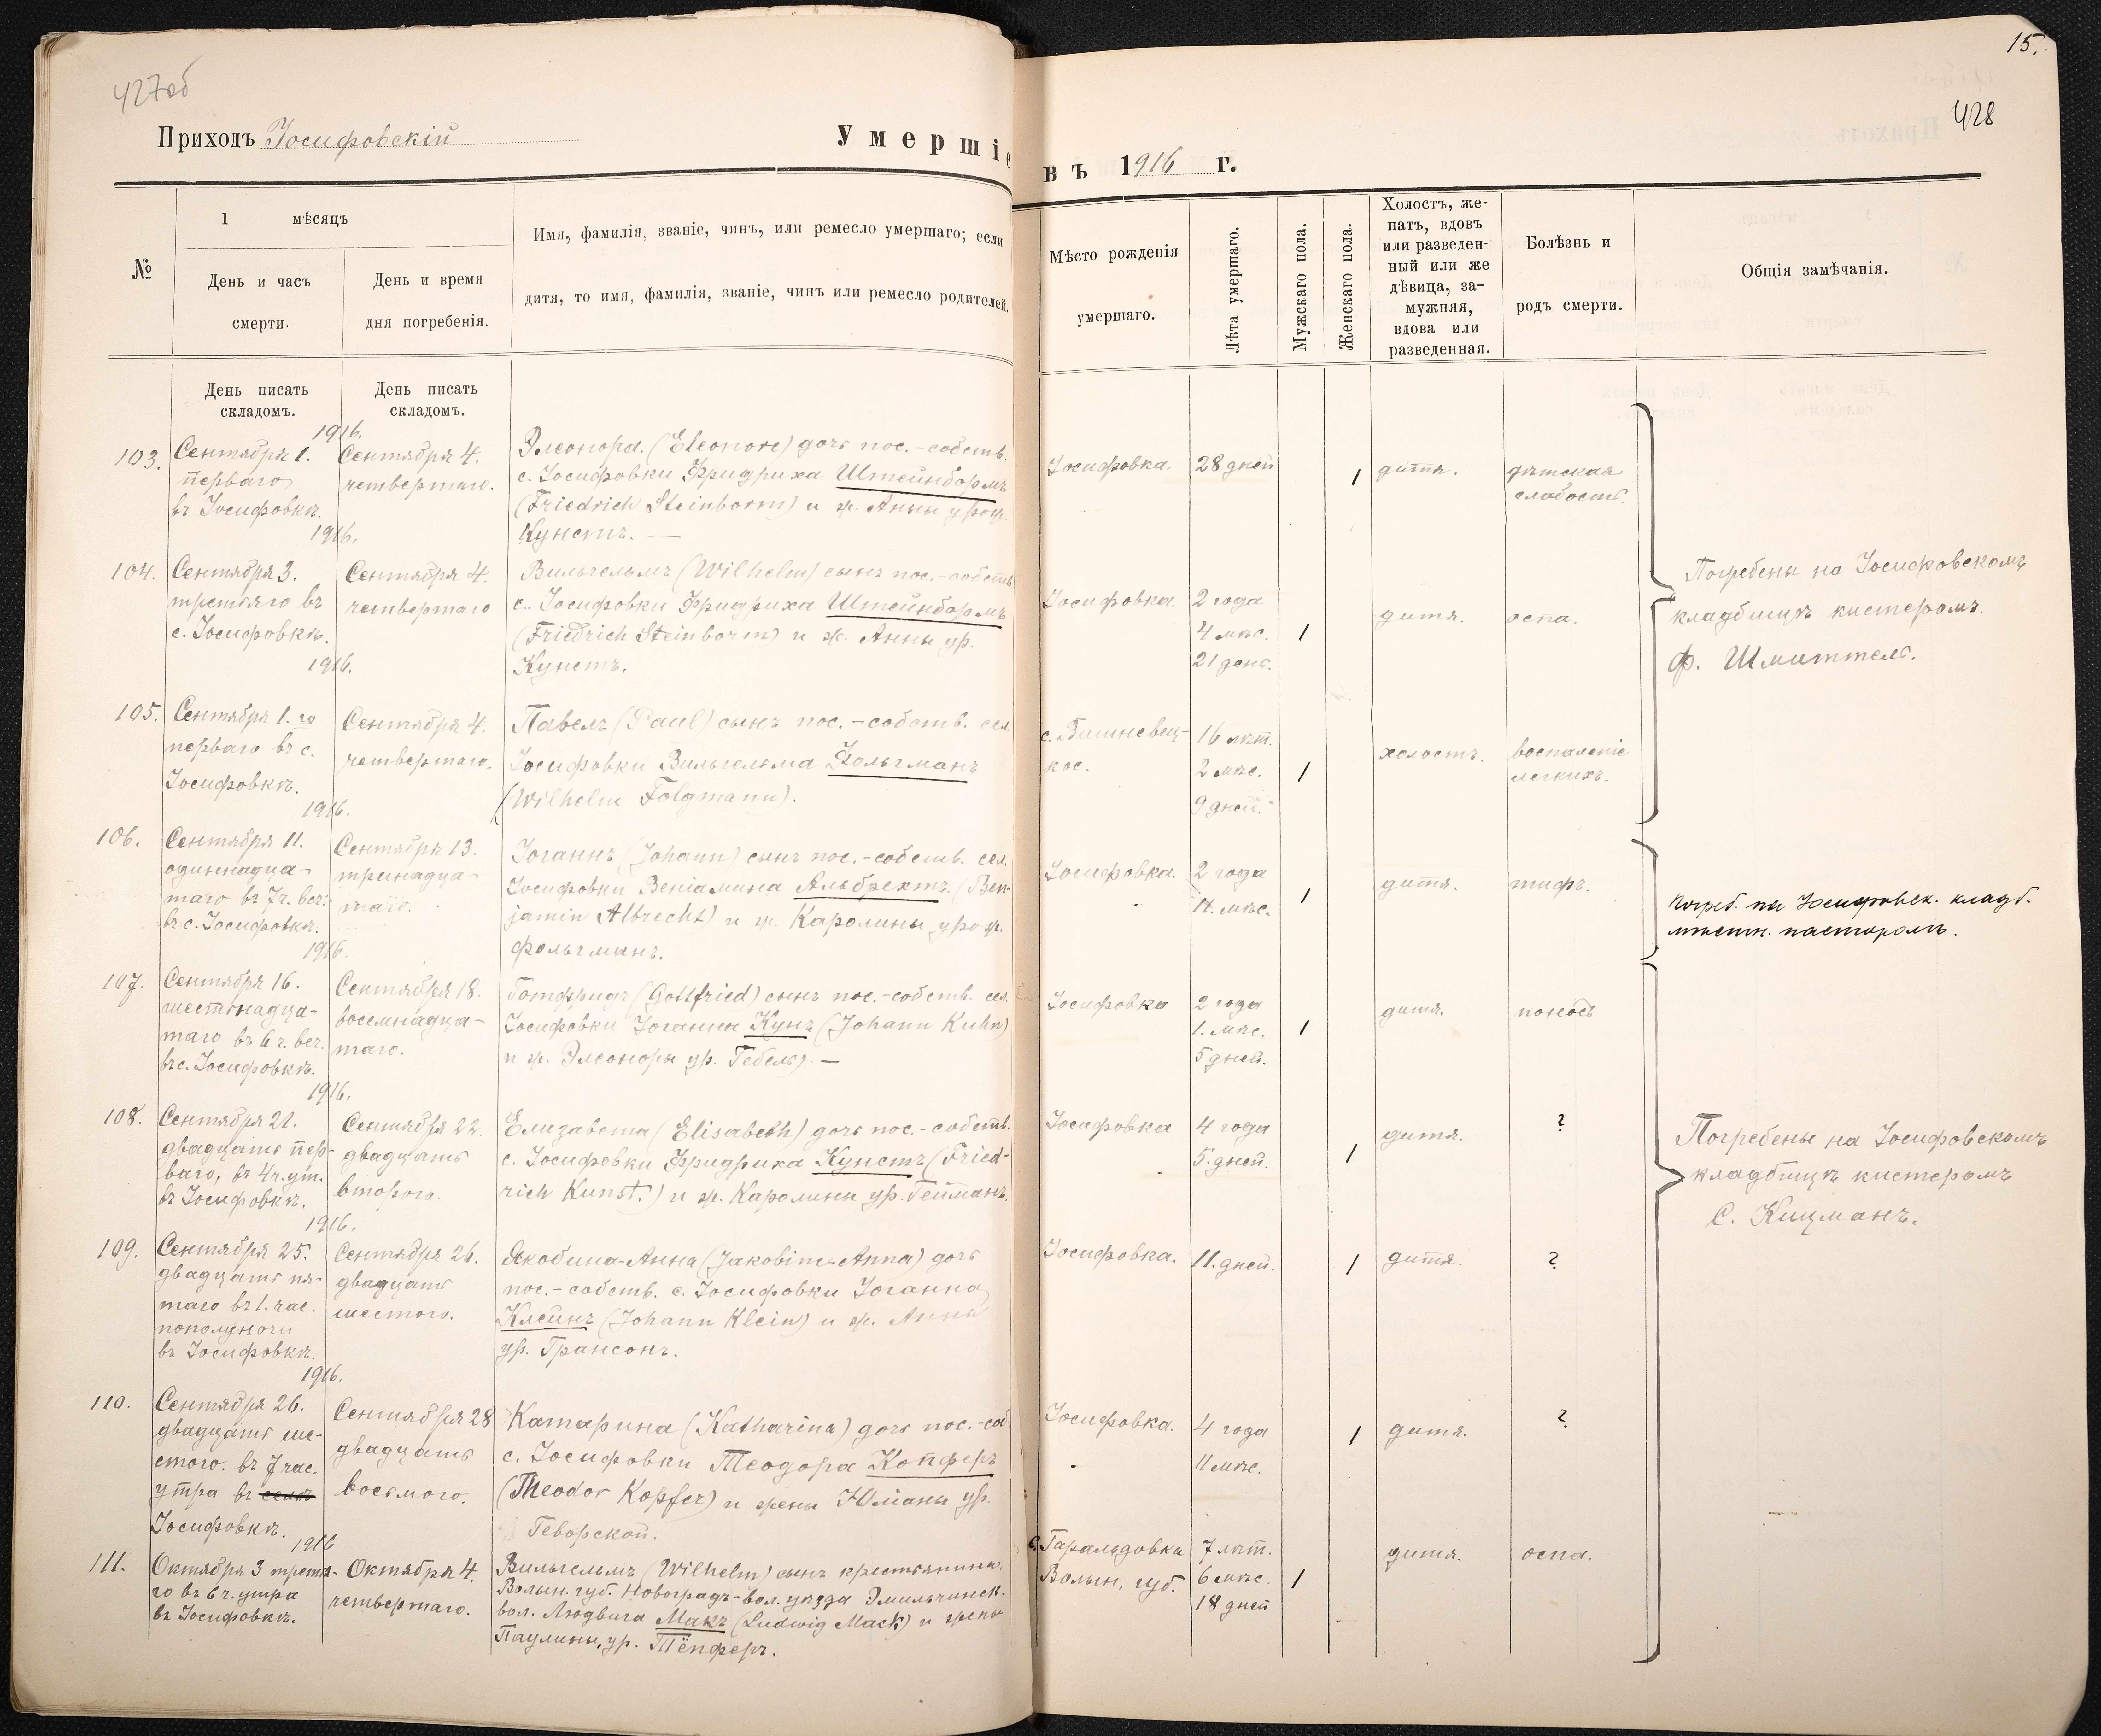 427об
Приходъ Іосифовскій
Умершіе
№
1 мѣсяцъ
День и часъ
смерти.
День и время
дня погребенія.
Имя, фамилія, званіе, чинъ, или ремесло умершаго; если
дитя, то имя, фамилія, званіе, чинъ или ремесло родителей.
День писать
складомъ.
День писать
складомъ.
1916.
103.
Сентября 1.
перваго
въ Іосифовкѣ.
Сентября 4.
четвертаго.
Элеонора. (Eleonore) дочь пос.-собств.
с. Іосифовки Фридриха Штейнбормъ
(Friedrich Steinborm) и ж. Анны урож.
Кунстъ. —
1916.
104.
Сентября 3.
третьяго въ
с. Іосифовкѣ.
Сентября 4.
четвертаго
Вильгельмъ (Wilhelm) сынъ пос.-собств.
с. Іосифовки Фридриха Штейнбормъ
(Friedrich Steinborm) и ж. Анны ур.
Кунстъ.
1916.
105.
Сентября 1.го
перваго въ с.
Іосифовкѣ.
Сентября 4.
четвертаго.
Павелъ (Paul) сынъ пос.-собств. сел.
Іосифовки Вильгельма Фольгманъ
(Wilhelm Folgmann).
1916.
106.
Сентября 11.
одиннадца-
таго въ 7 ч. веч.
въ с. Іосифовкѣ.
Сентября 13.
тринадца-
таго.
Іоганнъ (Johann) сынъ пос.-собств. сел.
Іосифовки Веніамина Альбрехтъ (Ben-
jamin Albrecht) и ж. Каролины урож.
Фольгманъ.
1916.
107.
Сентября 16.
шестнадца-
таго въ 6 ч. веч.
въ с. Іосифовкѣ.
Сентября 18.
восемнадца-
таго.
Готфридъ (Gottfried) сынъ пос.-собств. сел.
Іосифовки Іоганна Кунъ (Johann Kuhn)
и ж. Элеоноры ур. Гебель). —
1916.
108.
Сентября 21.
двадцать пер-
ваго, въ 4 ч. ут.
въ Іосифовкѣ.
Сентября 22.
двадцать
второго.
Елизавета (Elisabeth) дочь пос.-собств.
с. Іосифовки Фридриха Кунстъ (Fried-
rich Kunst.) и ж. Каролины ур. Гейманъ.
1916.
109.
Сентября 25.
двадцать пя-
таго въ 1. час.
пополуночи
въ Іосифовкѣ.
Сентября 26.
двадцать
шестого.
Якобина-Анна (Jakobine-Anna) дочь
пос.-собств. с. Іосифовки Іоганна
Клейнъ (Johann Klein) и ж. Анны
ур. Грансонъ.
1916.
110.
Сентября 26.
двадцать ше-
стого. въ 7 час.
утра въ селѣ
Іосифовкѣ.
Сентября 28
двадцать
восьмого.
Катарина (Katharina) дочь пос.-соб.
с. Іосифовки Теодора Копферъ
(Theodor Kopfer) и жены Юліаны ур.
Геворской.
1916
111.
Октября 3 третья-
го въ 6 ч. утра
въ Іосифовкѣ.
Октября 4.
четвертаго.
Вильгельмъ (Wilhelm) сынъ крестьянина.
Волын. губ. Новоградъ-вол. уѣзда Эмильчинск.
вол. Людвига Макъ (Ludwig Mack) и жены
Паулины, ур. Тёпферъ.
15.
428
въ 1916 г.
Мѣсто рожденія
умершаго.
Лѣта умершаго.
Мужскаго пола.
Женскаго пола.
Холостъ, же-
натъ, вдовъ
или разведен-
ный или же
дѣвица, за-
мужняя,
вдова или
разведенная.
Болѣзнь и
родъ смерти.
Общія замѣчанія.
Іосифовка. 28 дней 1 дитя. дѣтская
слабость.
Іосифовка 2 года
4 мѣс. 1 дитя. оспа.
21 день.
с. Вишневец-
кое.
16 лѣт.
2 мѣс. 1 холостъ. воспаленіе
легкихъ.
9 дней.
Іосифовка. 2 года
11. мѣс. 1 дитя. тифъ.
Іосифовка 2 года
1. мѣс. 1 дитя. поносъ
5 дней.
Іосифовка 4 года
5. дней. 1 дитя. ?
Іосифовка. 11. дней. 1 дитя. ?
Іосифовка. 4 года
11 мѣс. 1 дитя. ?
с. Гаральдовка
Волын. губ.
7 лѣт.
6 мѣс. 1 дитя. оспа.
18 дней
Погребены на Іосифовскомъ
кладбищѣ кистеромъ.
Ф. Шмиттель.
Погреб. на Іосифовск. кладб.
мѣстн. пасторомъ.
Погребены на Іосифовскомъ
кладбищѣ кистеромъ
С. Кицманъ.